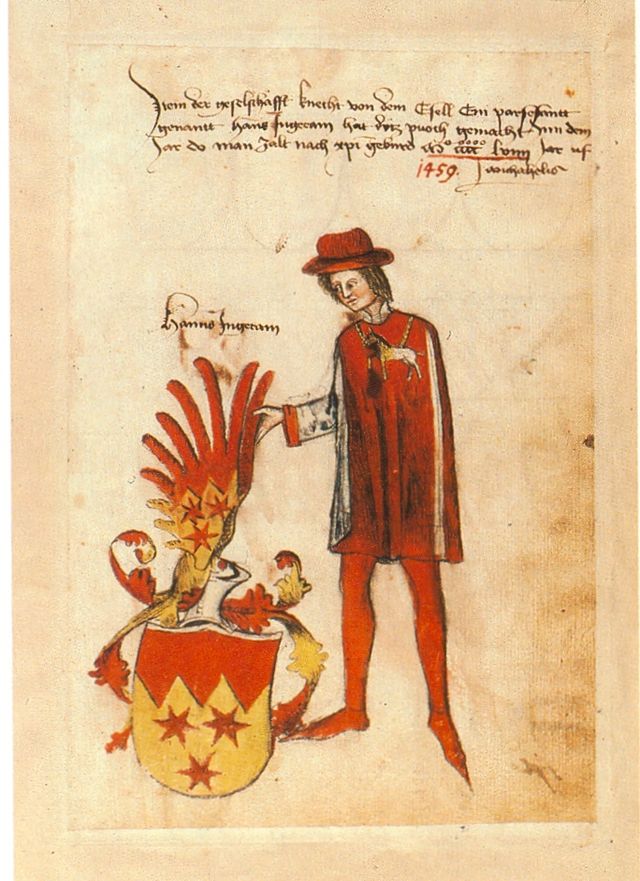 Item der geselschafft knecht von dem Esell Ein parsefantt
genantt Hans Ingeram hat ditz puoch gemacht Inn dem
Jar do man zalt nach xpi geburd lviiii Jar uf
1459. michahelis
Hanns Ingeram